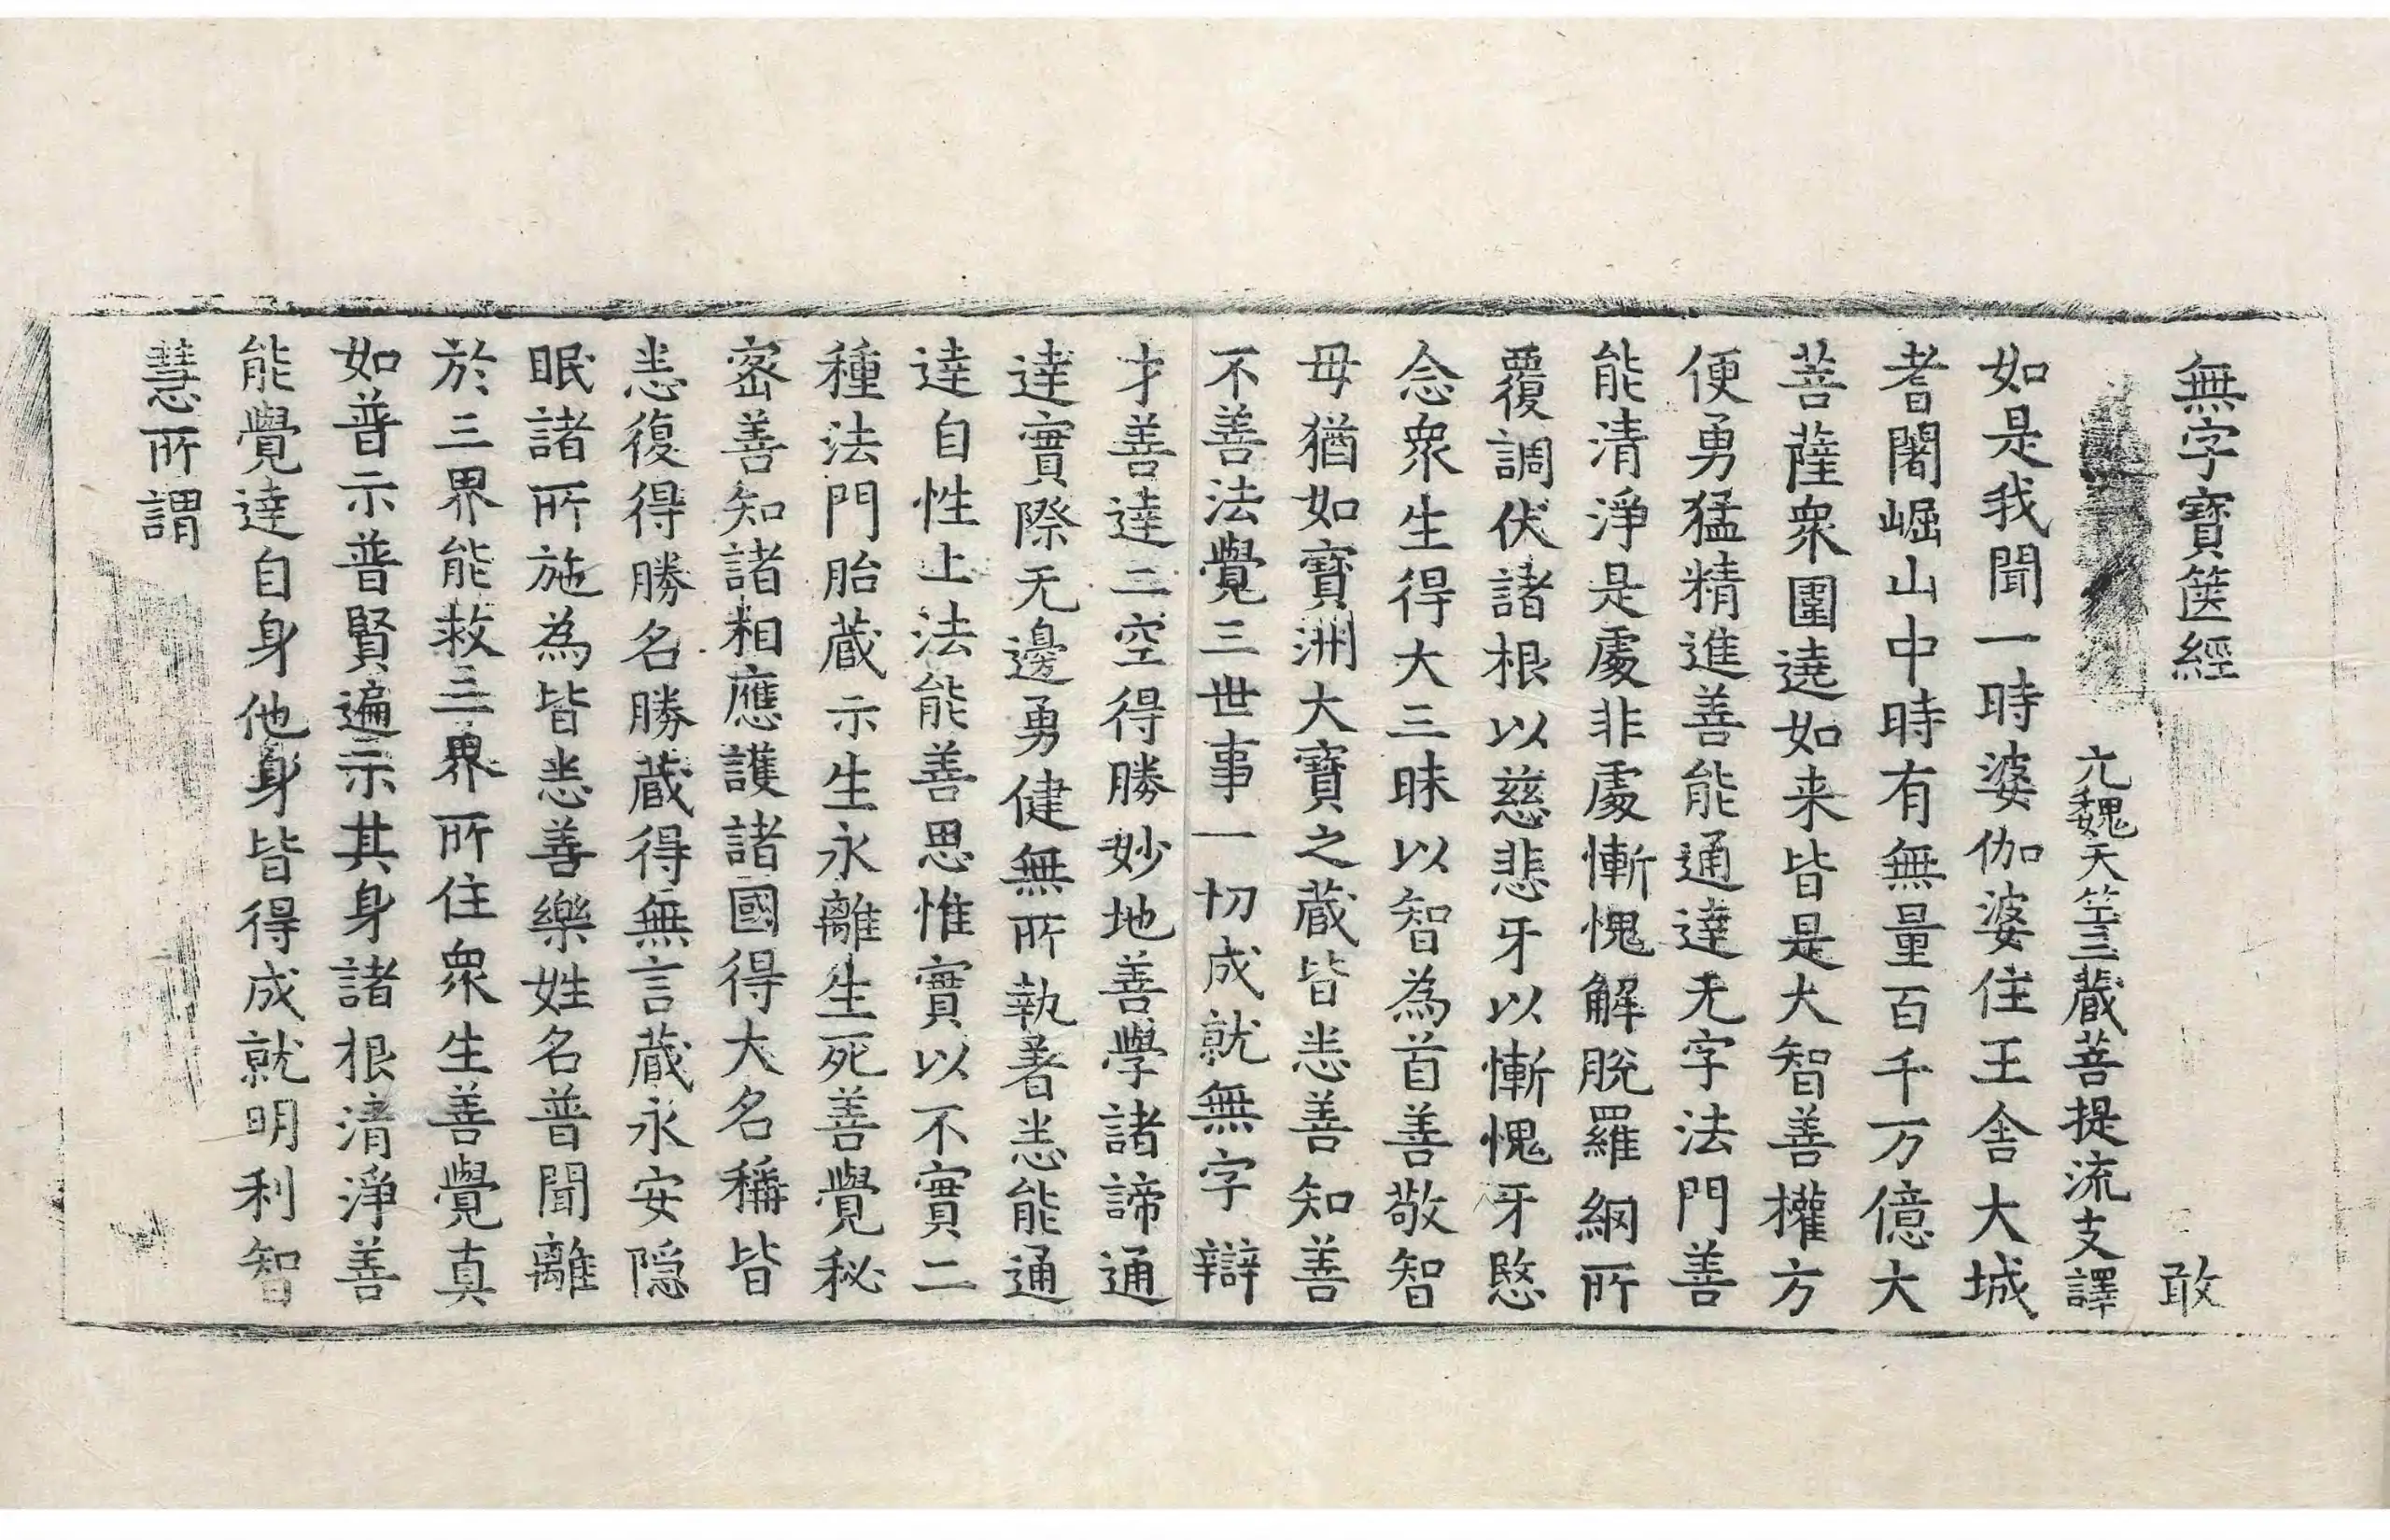 無字寶篋經 敢
元魏天竺三藏菩提流支譯
如是我聞一時婆伽婆住王舍大城
耆闍崛山中時有無量百千万億大
菩薩衆圍遶如来皆是大智善權方
便勇猛精進善能通達无字法門善
能清淨是處非處慚愧解脫羅網所
覆調伏諸根以慈悲牙以慚愧牙愍
念衆生得大三昧以智為首善敬智
毋猶如寶洲大寶之藏皆悉善知善
不善法覺三世事一切成就無字辯
才善達二空得勝妙地善學諸諦通
達實際无邊勇健無所執著悉能通
達自性上法能善思惟實以不實二
種法門胎藏示生永離生死善覺秘
密善知諸相應護諸國得大名稱皆
悉復得勝名勝藏得無言藏永安隱
眠諸所施為皆悉善樂姓名普聞離
於三界能救三界所住衆生善覺真
如普示普賢遍示其身諸根清淨善
能覺達自身他身皆得成就明利智
慧所謂